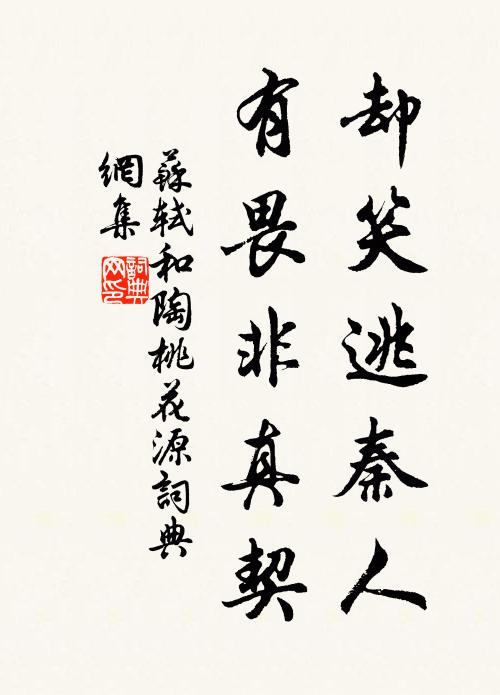 却笑逃秦人
有畏非真契
蘇軾和陶桃花源詞典
網集
詞典
网印